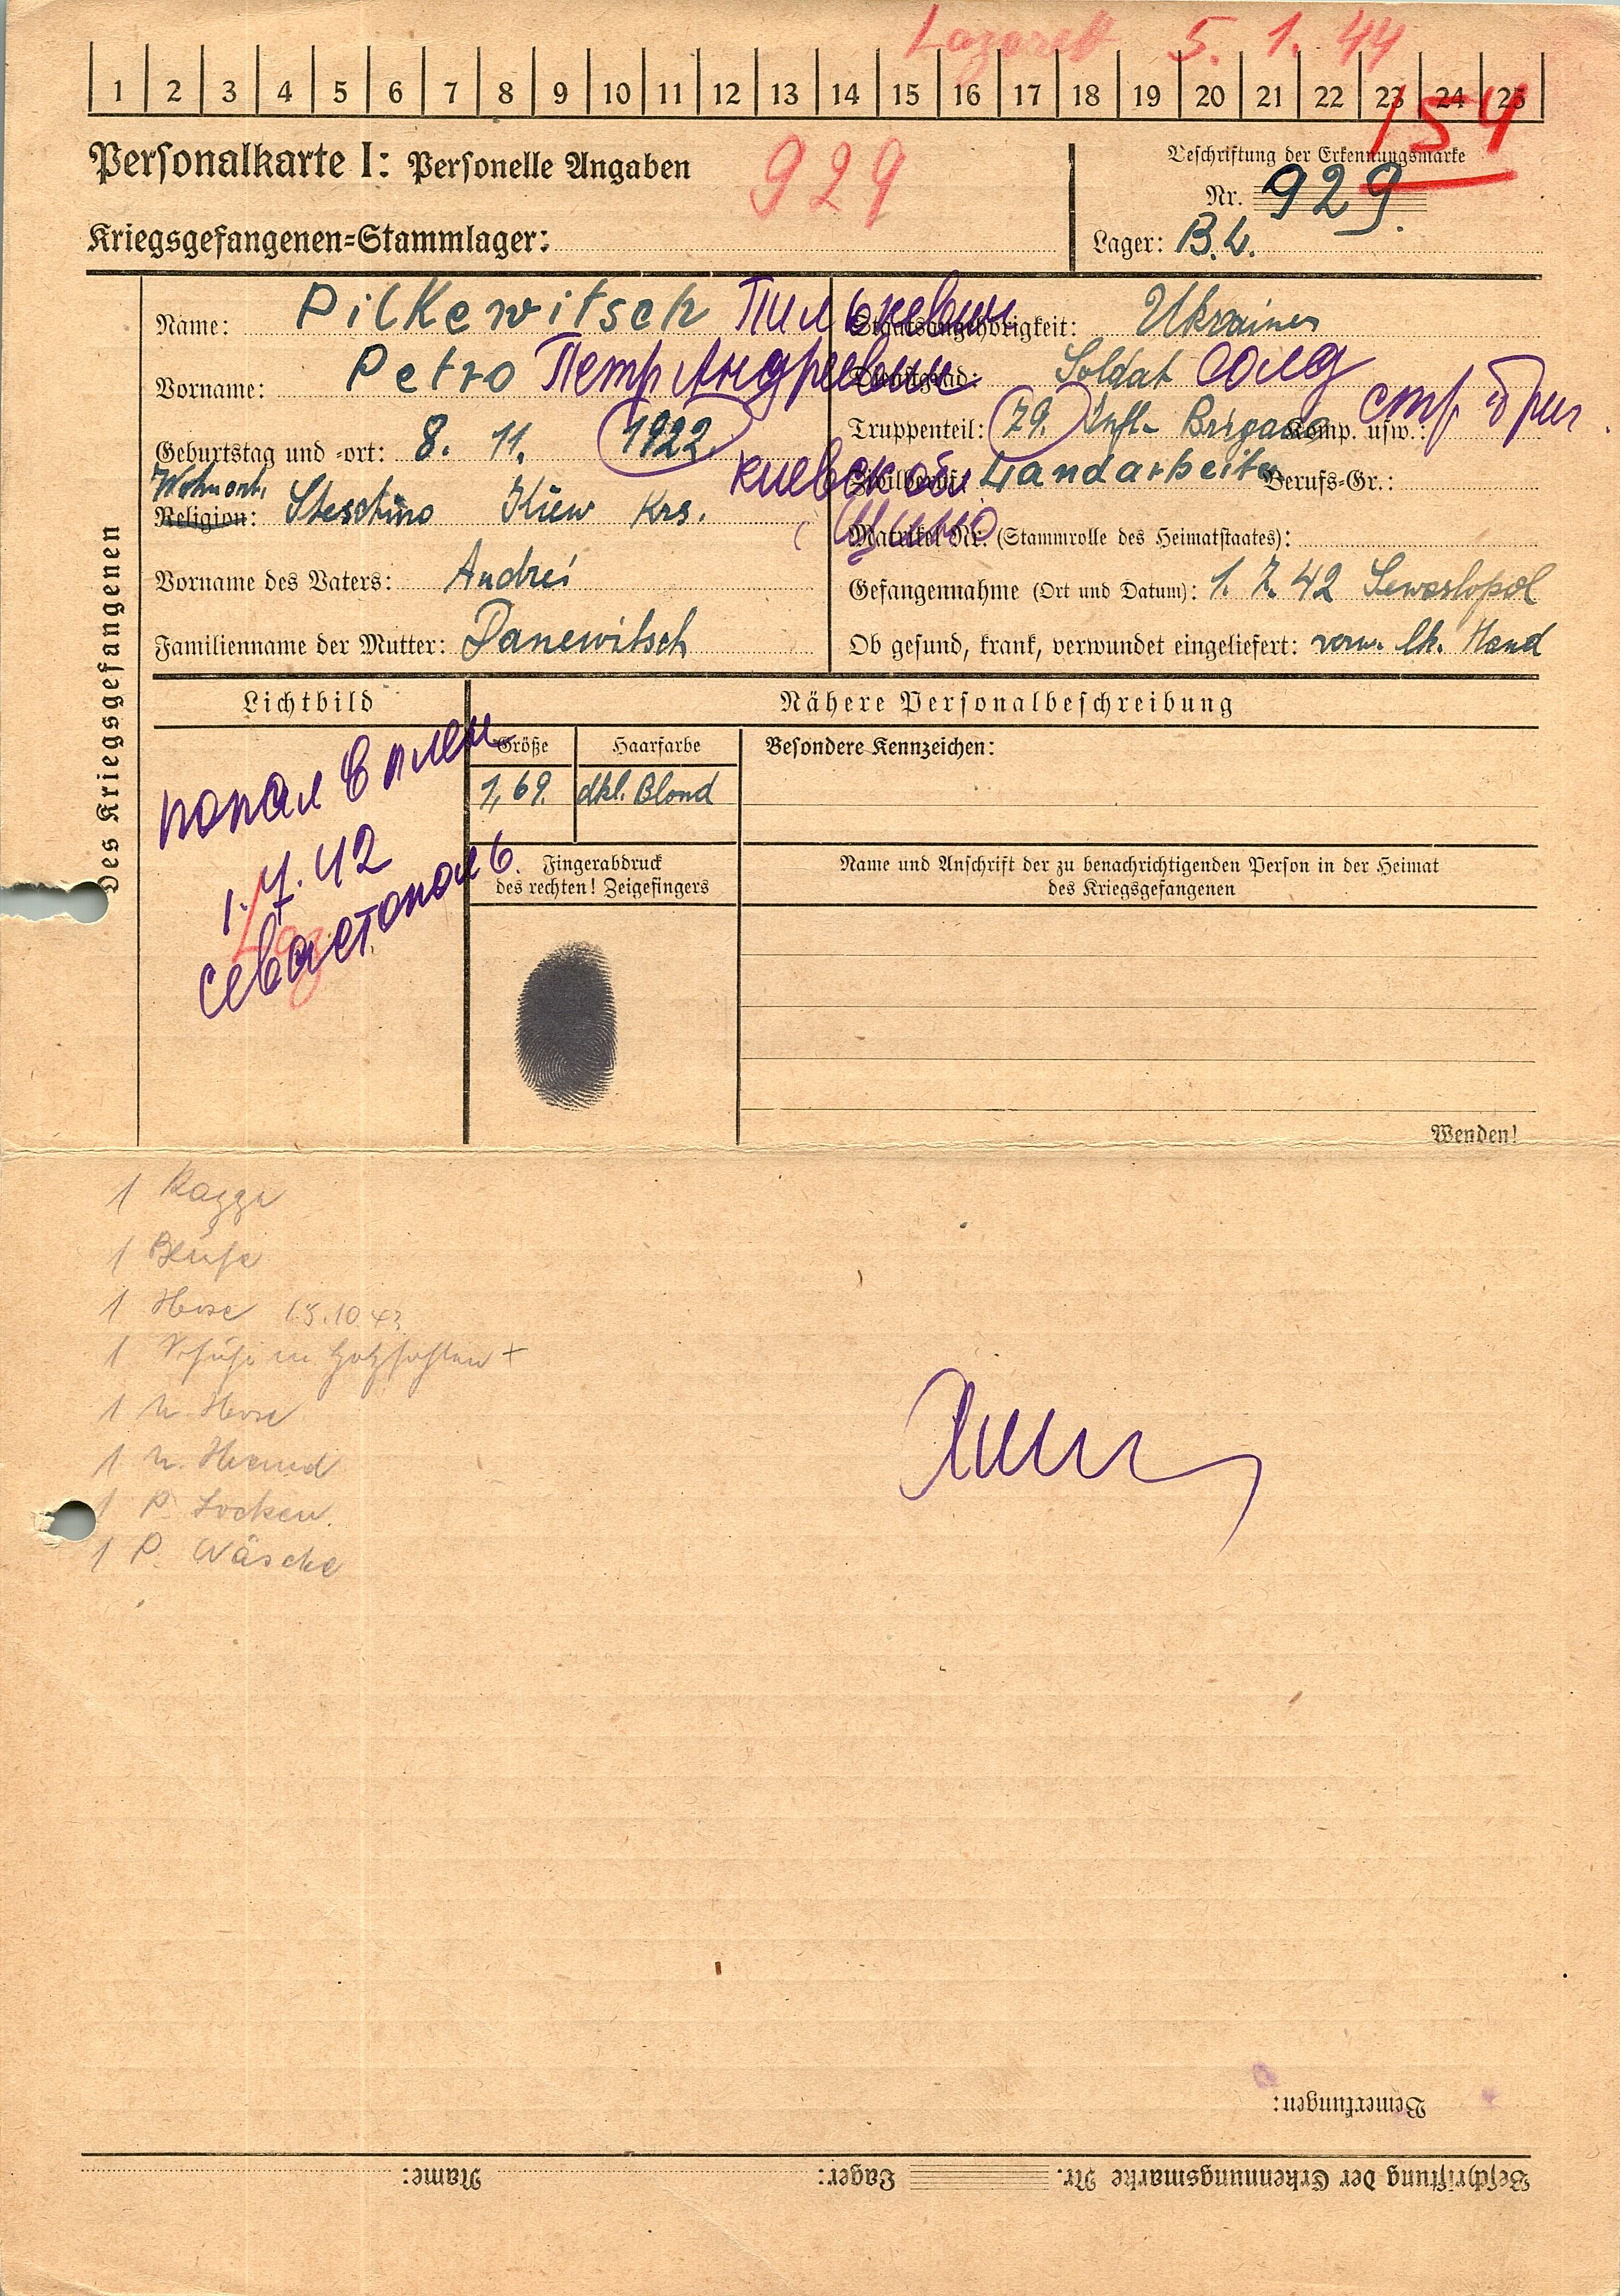 Lazarett 5. 1. 44
1 2 3 4 5 6 7 8 9 10 11 12 13 14 15 16 17 18 19 20 21 22 23 24 25
154
Personalkarte I: Personelle Angaben
929
Beschriftung der Erkennungsmarke
Nr. 929.
Kriegsgefangenen=Stammlager:
Lager: B.L.
Des Kriegsgefangenen
Name: Pilkewitsch Пилькевич
Vorname: Petro Петр Андреевич
Geburtstag und =ort: 8. 11. 1922.
Wohnort.
Religion: Steschino Kiew Krs.
киевск обл
Vorname des Vaters: Andrei
Familienname der Mutter: Danewitsch
Staatsangehörigkeit: Ukrainer
Dienstgrad: Soldat солд
Truppenteil: 79. Inft- Brigade Komp. usw.: стр бриг.
Zivilberuf: Landarbeiter Berufs=Gr.:
Matrikel Nr. (Stammrolle des Heimatstaates):
Gefangennahme (Ort und Datum): 1. 7. 42 Sewastopol
Ob gesund, krank, verwundet eingeliefert: verw. lk. Hand
Lichtbild
попал в плен
1.7.42
Laz
Севастополь
Nähere Personalbeschreibung
Größe
Haarfarbe
Besondere Kennzeichen:
1,69.
dkl. Blond
Fingerabdruck
des rechten! Zeigefingers
Name und Anschrift der zu benachrichtigenden Person in der Heimat
des Kriegsgefangenen
Wenden!
1 Bluse
1 Hose 15.10.43
1 Schuhe m Holzsohlen +
1 U. Hose
1 U. Hemd
1 P. Socken.
1 P. Wäsche
Bemerkungen:
Beschriftung der Erkennungsmarke Nr. Lager: Name: